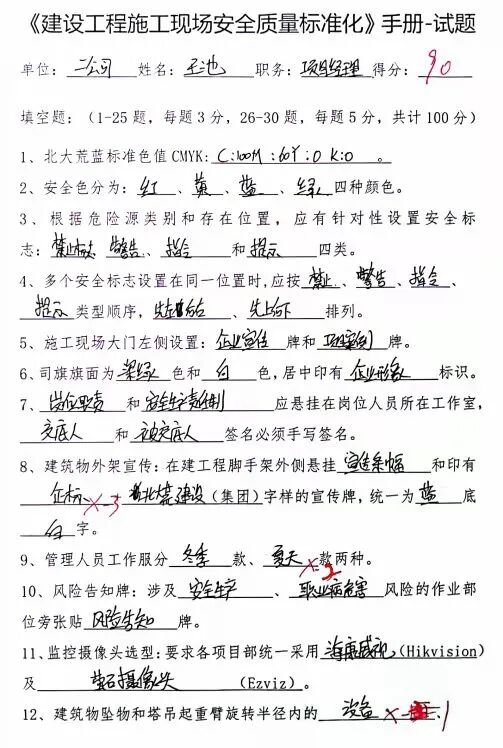 《建设工程施工现场安全质量标准化》手册-试题
单位: 二公司 姓名: 王池 职务: 项目经理 得分: 90
填空题:(1-25题,每题3分,26-30题,每题5分,共计100分)
1、北大荒蓝标准色值CMYK: C:100M:60Y:0 K:0 。
2、安全色分为: 红 、黄 、蓝 、绿 四种颜色。
3、根据危险源类别和存在位置,应有针对性设置安全标
志: 禁止 警告 、指令 和提示 四类。
4、多个安全标志设置在同一位置时,应按 禁止 、警告 、指令 、
提示 类型顺序, 先左后右 、先上后下 排列。
5、施工现场大门左侧设置: 企业宣传 牌和 项目 牌。
6、司旗旗面为 深绿 色和 白 色,居中印有 企业形象 标识。
7、 岗位职责 和 安全生产责任制 应悬挂在岗位人员所在工作室,
交底人 和 被交底人 签名必须手写签名。
8、建筑物外架宣传:在建工程脚手架外侧悬挂 宣传条幅 和印有
企标 ×-3 北大荒建设(集团)字样的宣传牌,统一为 蓝 底
白 字。
9、管理人员工作服分 冬季 款、 夏天 ×款两种。
10、风险告知牌:涉及 安全生产 、 职业病危害 2 风险的作业部
位旁张贴 风险告知 牌。
11、监控摄像头选型:要求各项目部统一采用 海康威视(Hikvision)
及 萤石摄像头 (Ezviz)。
12、建筑物坠物和塔吊起重臂旋转半径内的 设备 × -1